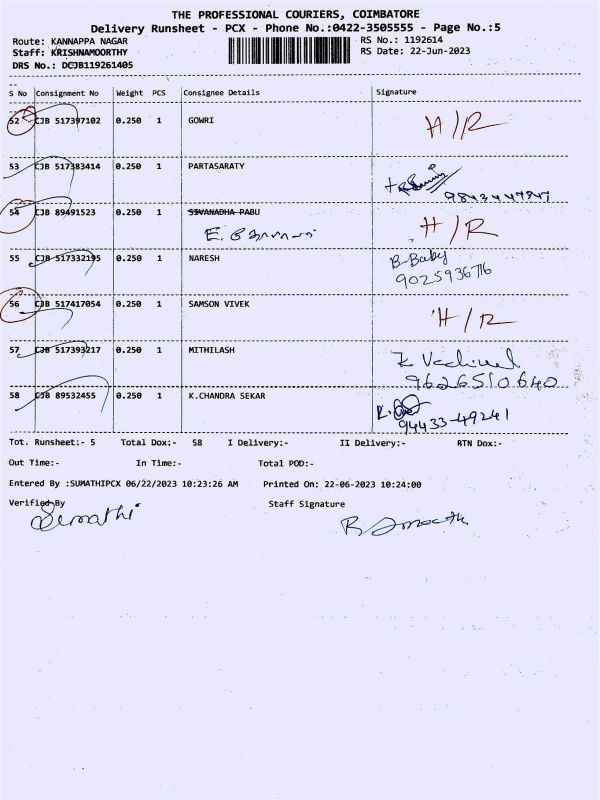 THE PROFESSIONAL COURIERS, COIMBATORE
Delivery Runsheet - PCX - Phone No.:0422-3505555 - Page No.:5
Route: KANNAPPA NAGAR RS No.: 1192614
Staff: KRISHNAMOORTHY RS Date: 22-Jun-2023
DRS No.: DCJB119261405
S No Consignment No Weight PCS Consignee Details Signature
52 CJB 517397102 0.250 1 GOWRI H/R
53 CJB 517383414 0.250 1 PARTASARATY
54 CJB 89491523 0.250 1 SIVANADHA PABU H/R
55 CJB 517332195 0.250 1 NARESH B-Baby
9025936716
56 CJB 517417054 0.250 1 SAMSON VIVEK H/R
57 CJB 517393217 0.250 1 MITHILASH
9626510640
58 CJB 89532455 0.250 1 K.CHANDRA SEKAR
94433-49241
Tot. Runsheet:- 5 Total Dox:- 58 I Delivery:- II Delivery:- RTN Dox:-
Out Time:- In Time:- Total POD:-
Entered By :SUMATHIPCX 06/22/2023 10:23:26 AM Printed On: 22-06-2023 10:24:00
Verified By Staff Signature
Sumathi